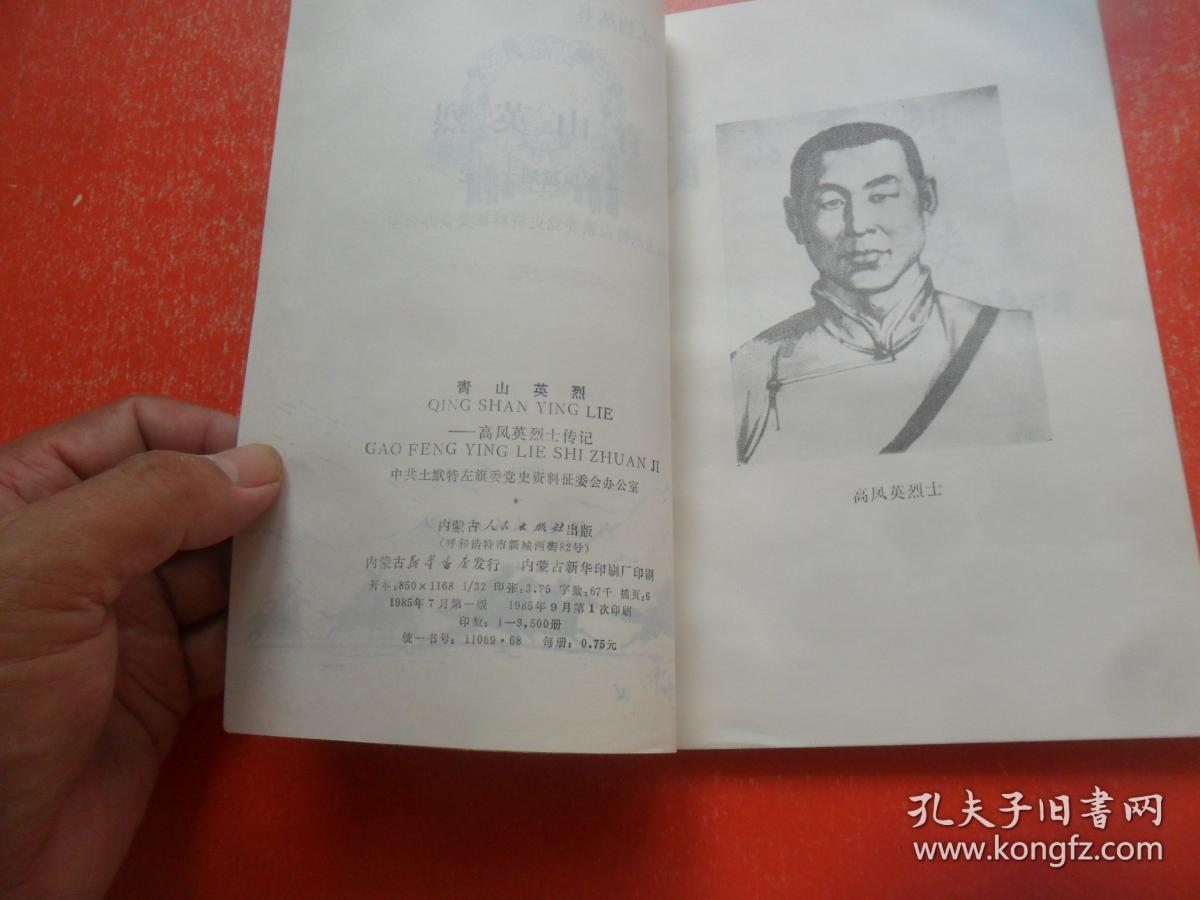 青山英烈
QING SHAN YING LIE
——高凤英烈士传记
GAO FENG YING LIE SHI ZHUAN JI
中共土默特左旗委党史资料征委会办公室
*
内蒙古人民出版社出版
(呼和浩特市新城西街82号)
内蒙古新华书店发行 内蒙古新华印刷厂印刷
开本:850×1168 1/32 印张:3.75 字数:67千 插页:6
1985年7月第一版 1985年9月第1次印刷
印数:1—9,500册
统一书号:11089·68 每册:0.75元
高凤英烈士
孔夫子旧书网
www.kongfz.com